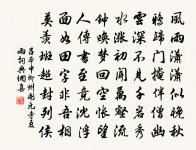 風雨瀟瀟似晚秋
鴉歸門掩伴僧幽
雲深不見千巖秀
水漲初聞萬壑流
鍾喚夢回空悵望
人傳書至竟沈浮
面如田字非吾相
莫羨班超封列侯
呂本中柳州開元寺夏
雨